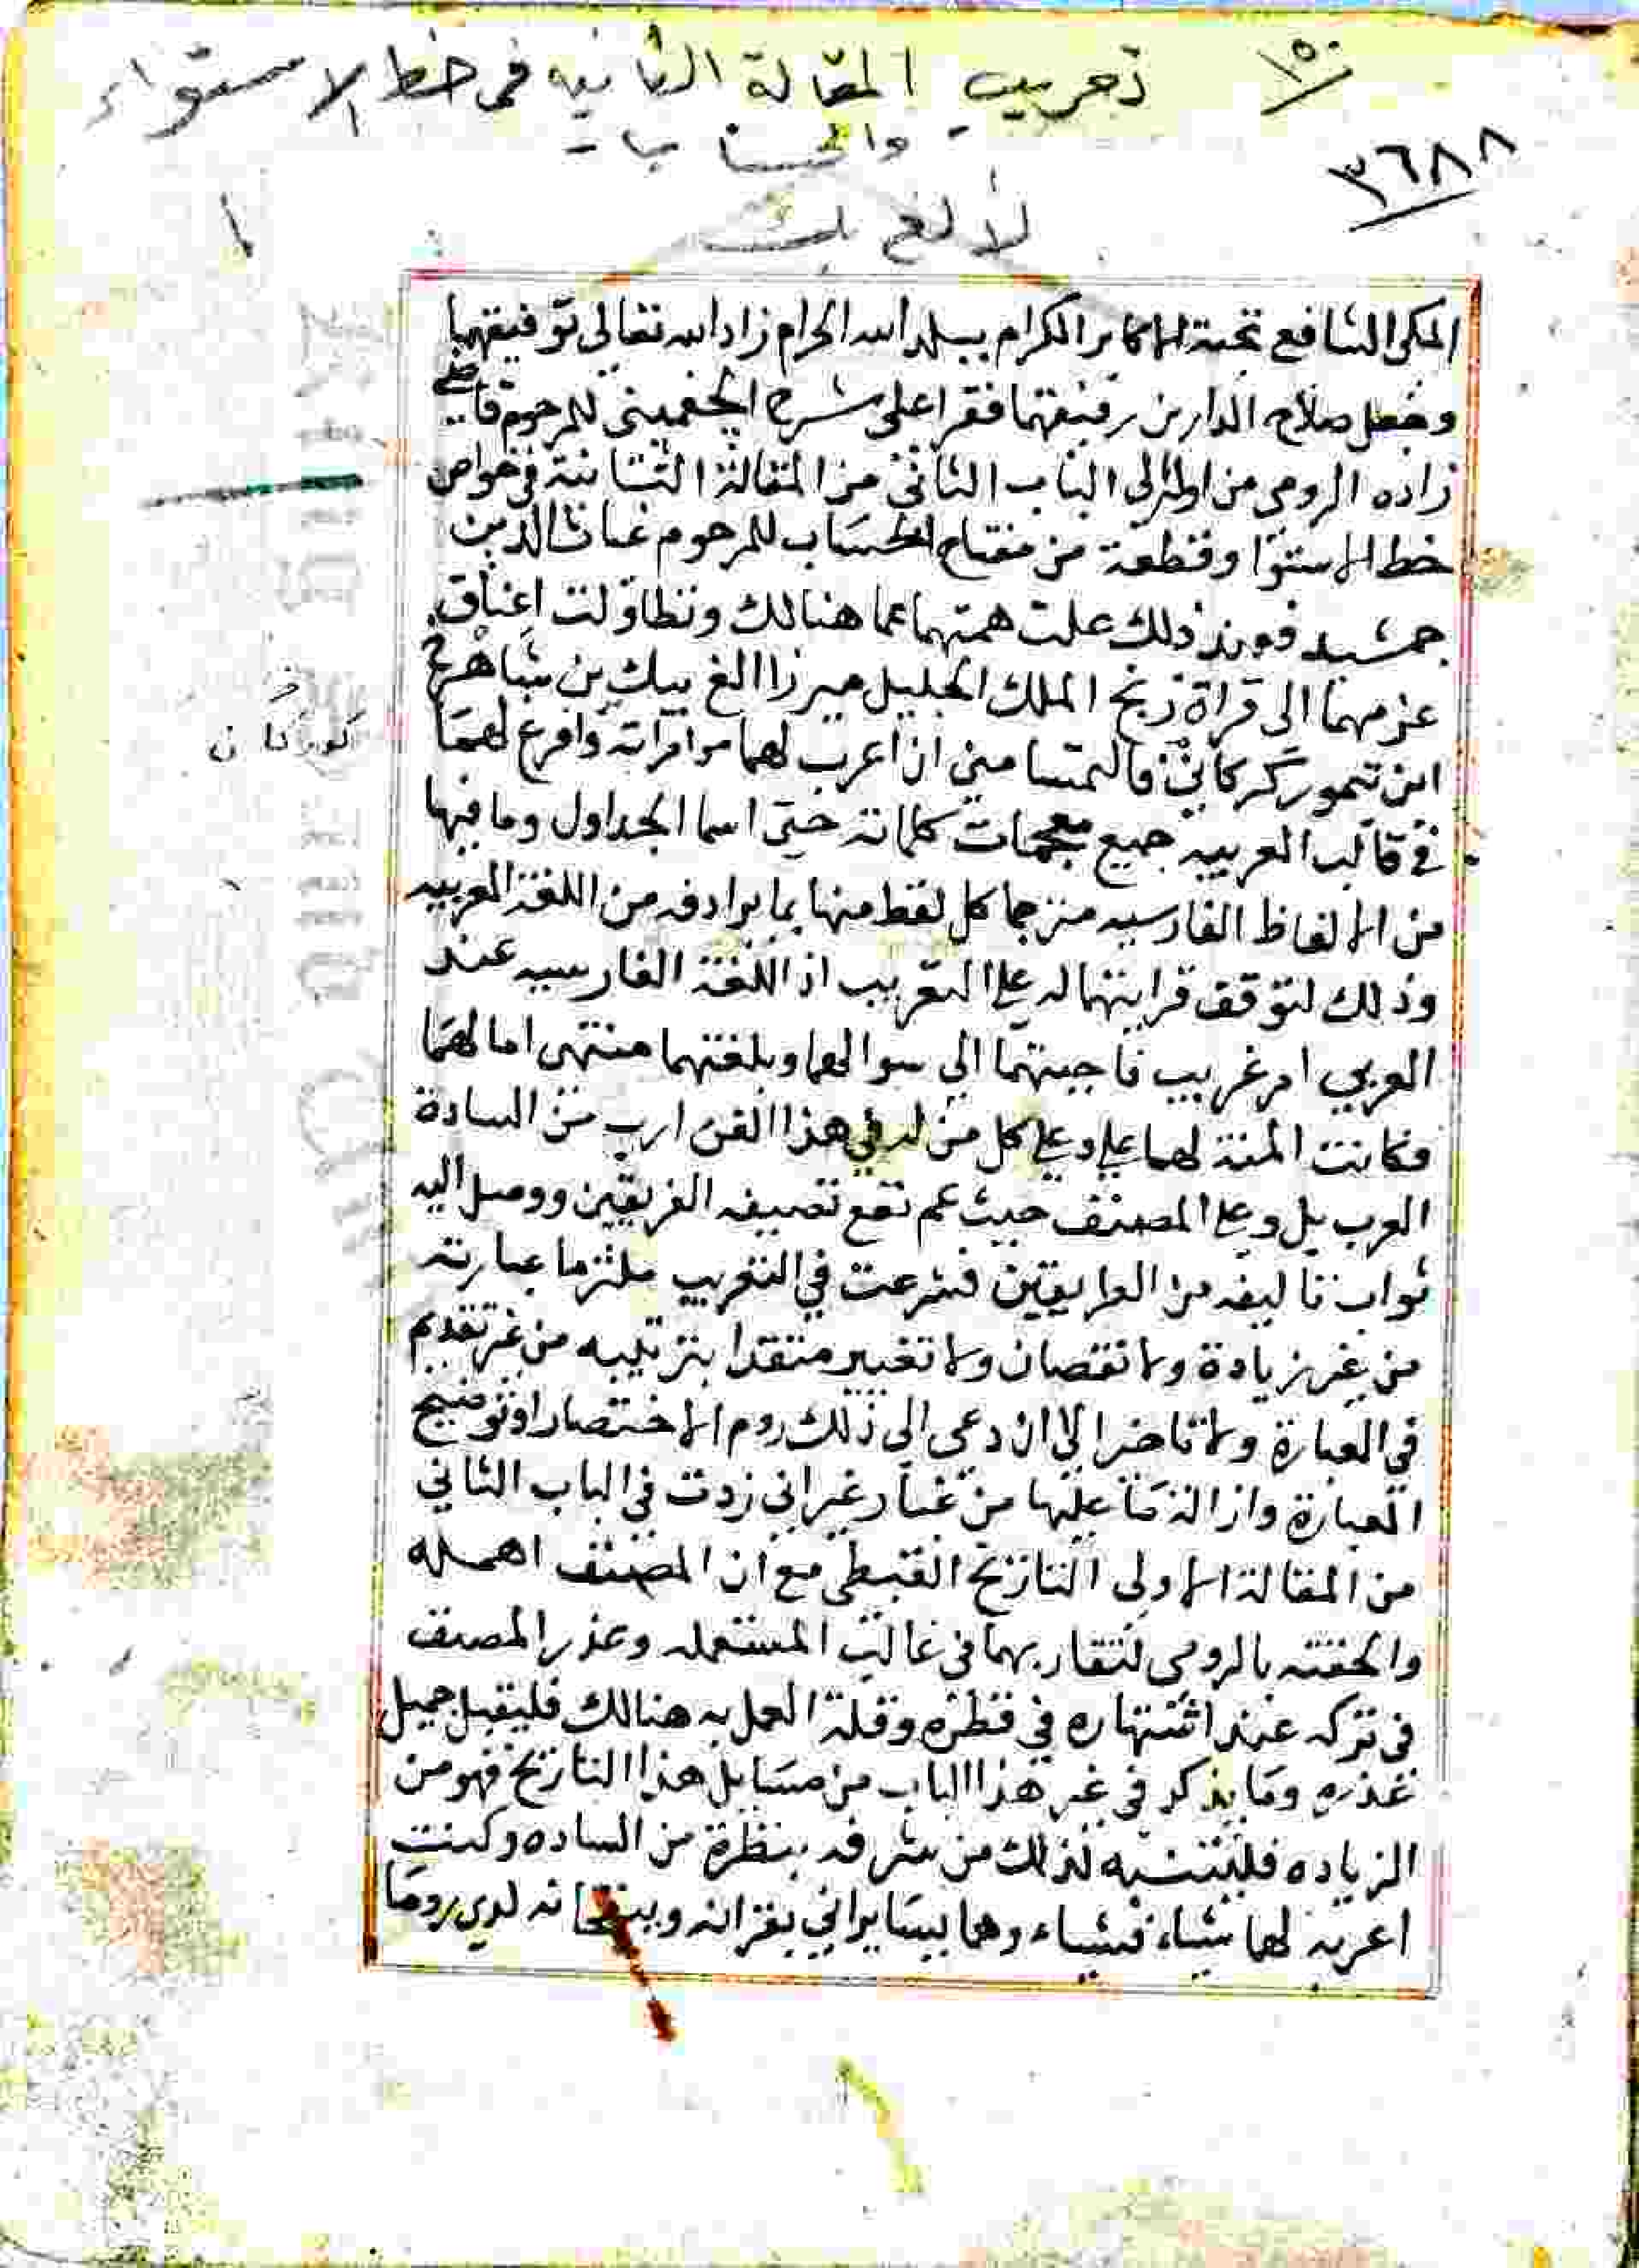 ١٥٠
تعريب المقالة الثانيه فى خط الاستواء
والحساب
٣٦٨٨
لالغ بك
١
المكى الشافع نخبة الاكابر الكرام ببلد الله الحرام زاد الله تعالى توفيقهما
وجعل صلاح الدارين رفيقهما فقرا على شرح الجغمينى للمرحوم قاضى
زاده الرومى من اوله الى الباب الثانى من المقالة الثانية فى خواص
خط الاستوا وقطعة من مفتاح الحساب للمرحوم غياث الدين
جمشيد فعند ذلك علت همتهما عما هنالك وتطاولت اعناق
عزمهما الى قراة زيج الملك الجليل ميرزا الغ بيك بن شاهرخ
ابن تيمور كركانى فالتمسا منى ان اعرب لهما موامراته وافرغ لهما
كوركان
فى قالب العربيه جميع معجمات كلماته حتى اسما الجداول وما فيها
من الالفاظ الفارسيه مترجما كل لفظ منها بما يرادفه من اللغة العربيه
وذلك لتوقف قرايتهما له على التعريب اذ اللغة الفارسيه عند
العربى امر غريب فاجبتهما الى سوالهما وبلغتهما منتهى امالهما
فكانت المنة لهما على وعلى كل من له فى هذا الفن ارب من السادة
العرب بل وعلى المصنف حيث عم نفع تصنيفه الفريقين ووصل اليه
ثواب تاليفه من الطريقين فشرعت فى التعريب ملتزما عبارته
من غير زيادة ولا نقصان ولا تغيير متقيدا بترتيبه من غير تقديم
فى العبارة ولا تاخير الا ان دعى الى ذلك روم الاختصار او توضيح
العبارة وازالة ما عليها من غبار غير انى زدت فى الباب الثانى
من المقالة الاولى التاريخ القبطى مع ان المصنف اهمله
والحقته بالرومى لتقاربهما فى غالب المستعمله وعذر المصنف
فى تركه عند اشتهاره فى قطره وقلة العمل به هنالك فليقبل جميل
عذره وما يذكر فى غير هذا الباب من مسايل هذا التاريخ فهو من
الزياده فليتنبه لذلك من شرفه بنظرة من الساده وكنت
اعربه لهما شياء فشياء وهما يسايرانى بقرانه لدى وما